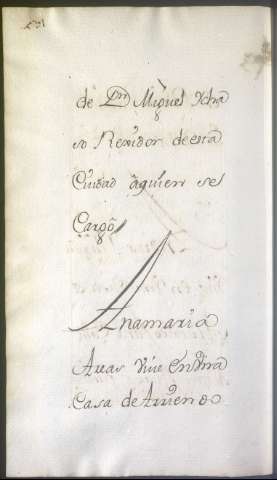 de Dn Miguel Icha
so Rexidor de esta
Ciudad âquien se l
Cargô
Anamaria
Auas Viue en otra
Casa de Arriendo